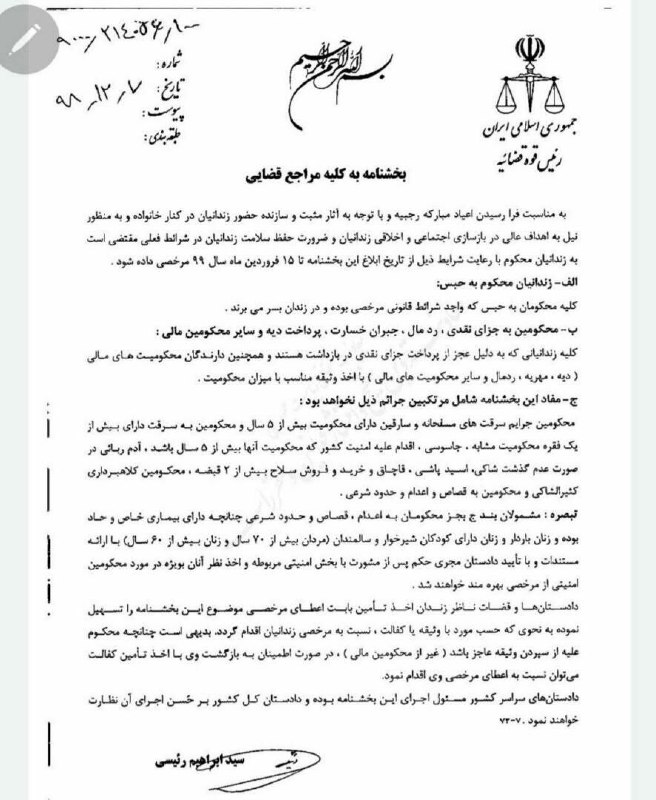 بسم الله الرحمن الرحیم
جمهوری اسلامی ایران
رئیس قوه قضائیه
شماره: ۹۰۰۰/۲۱۴۰۵۶/۱۰۰
تاریخ: ۹۸/۱۲/۷
پیوست:
طبقه بندی:
بخشنامه به کلیه مراجع قضایی
به مناسبت فرا رسیدن اعیاد مبارکه رجبیه و با توجه به آثار مثبت و سازنده حضور زندانیان در کنار خانواده و به منظور
نیل به اهداف عالی در بازسازی اجتماعی و اخلاقی زندانیان و ضرورت حفظ سلامت زندانیان در شرائط فعلی مقتضی است
به زندانیان محکوم با رعایت شرایط ذیل از تاریخ ابلاغ این بخشنامه تا ۱۵ فروردین ماه سال ۹۹ مرخصی داده شود .
الف- زندانیان محکوم به حبس:
کلیه محکومان به حبس که واجد شرائط قانونی مرخصی بوده و در زندان بسر می برند .
ب- محکومین به جزای نقدی ، رد مال ، جبران خسارت ، پرداخت دیه و سایر محکومین مالی :
کلیه زندانیانی که به دلیل عجز از پرداخت جزای نقدی در بازداشت هستند و همچنین دارندگان محکومیت های مالی
( دیه ، مهریه ، ردمال و سایر محکومیت های مالی ) با اخذ وثیقه مناسب با میزان محکومیت .
ج- مفاد این بخشنامه شامل مرتکبین جرائم ذیل نخواهد بود :
محکومین جرایم سرقت های مسلحانه و سارقین دارای محکومیت بیش از ۵ سال و محکومین به سرقت دارای بیش از
یک فقره محکومیت مشابه ، جاسوسی ، اقدام علیه امنیت کشور که محکومیت آنها بیش از ۵ سال باشد ، آدم ربائی در
صورت عدم گذشت شاکی، اسید پاشی ، قاچاق و خرید و فروش سلاح بیش از ۲ قبضه ، محکومین کلاهبرداری
کثیرالشاکی و محکومین به قصاص و اعدام و حدود شرعی .
تبصره : مشمولان بند ج بجز محکومان به اعدام ، قصاص و حدود شرعی چنانچه دارای بیماری خاص و حاد
بوده و زنان باردار و زنان دارای کودکان شیرخوار و سالمندان (مردان بیش از ۷۰ سال و زنان بیش از ۶۰ سال) با ارائه
مستندات و با تأیید دادستان مجری حکم پس از مشورت با بخش امنیتی مربوطه و اخذ نظر آنان بویژه در مورد محکومین
امنیتی از مرخصی بهره مند خواهند شد .
دادستان‌ها و قضات ناظر زندان اخذ تأمین بابت اعطای مرخصی موضوع این بخشنامه را تسهیل
نموده به نحوی که حسب مورد با وثیقه یا کفالت ، نسبت به مرخصی زندانیان اقدام گردد. بدیهی است چنانچه محکوم
علیه از سپردن وثیقه عاجز باشد ( غیر از محکومین مالی ) ، در صورت اطمینان به بازگشت وی با اخذ تأمین کفالت
می‌توان نسبت به اعطای مرخصی وی اقدام نمود.
دادستان‌های سراسر کشور مسئول اجرای این بخشنامه بوده و دادستان کل کشور بر حُسن اجرای آن نظارت
خواهند نمود . ۷-۷۲
سید ابراهیم رئیسی